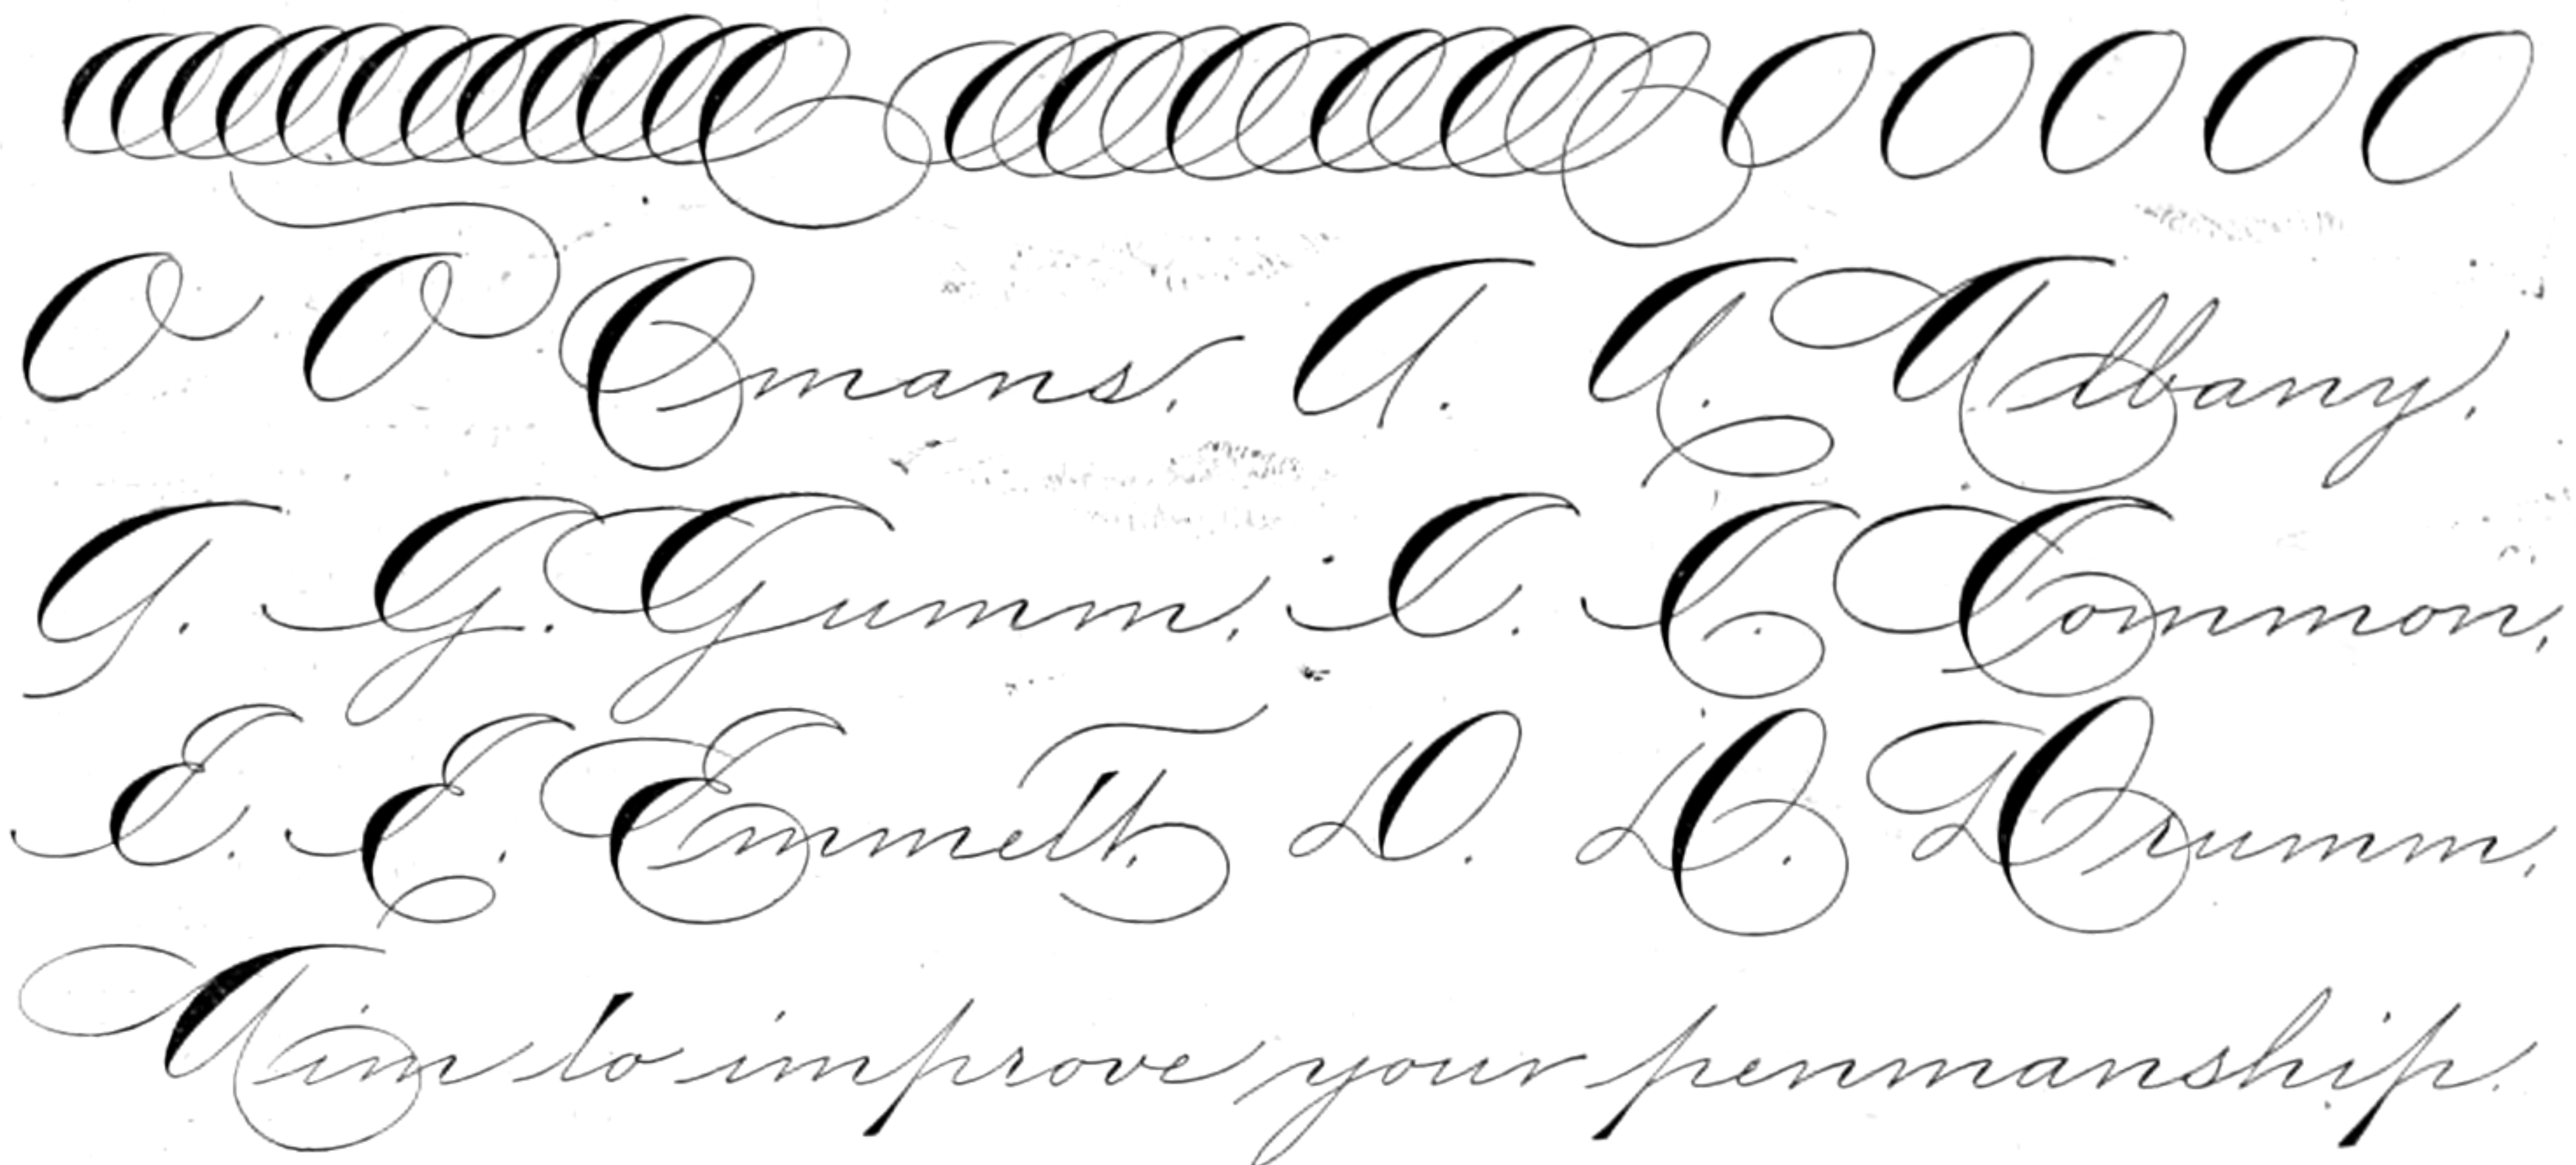 O O O O O
O O Omans, A. A. Albany,
G. G. Gumm, C. C. Common,
E. E. Emmett, D. D. Drumm,
Aim to improve your penmanship.